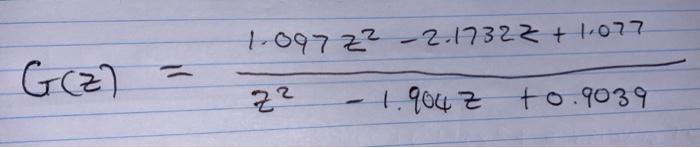 G(z) = 1.097 z² - 2.1732z + 1.077
z² - 1.904 z + 0.9039